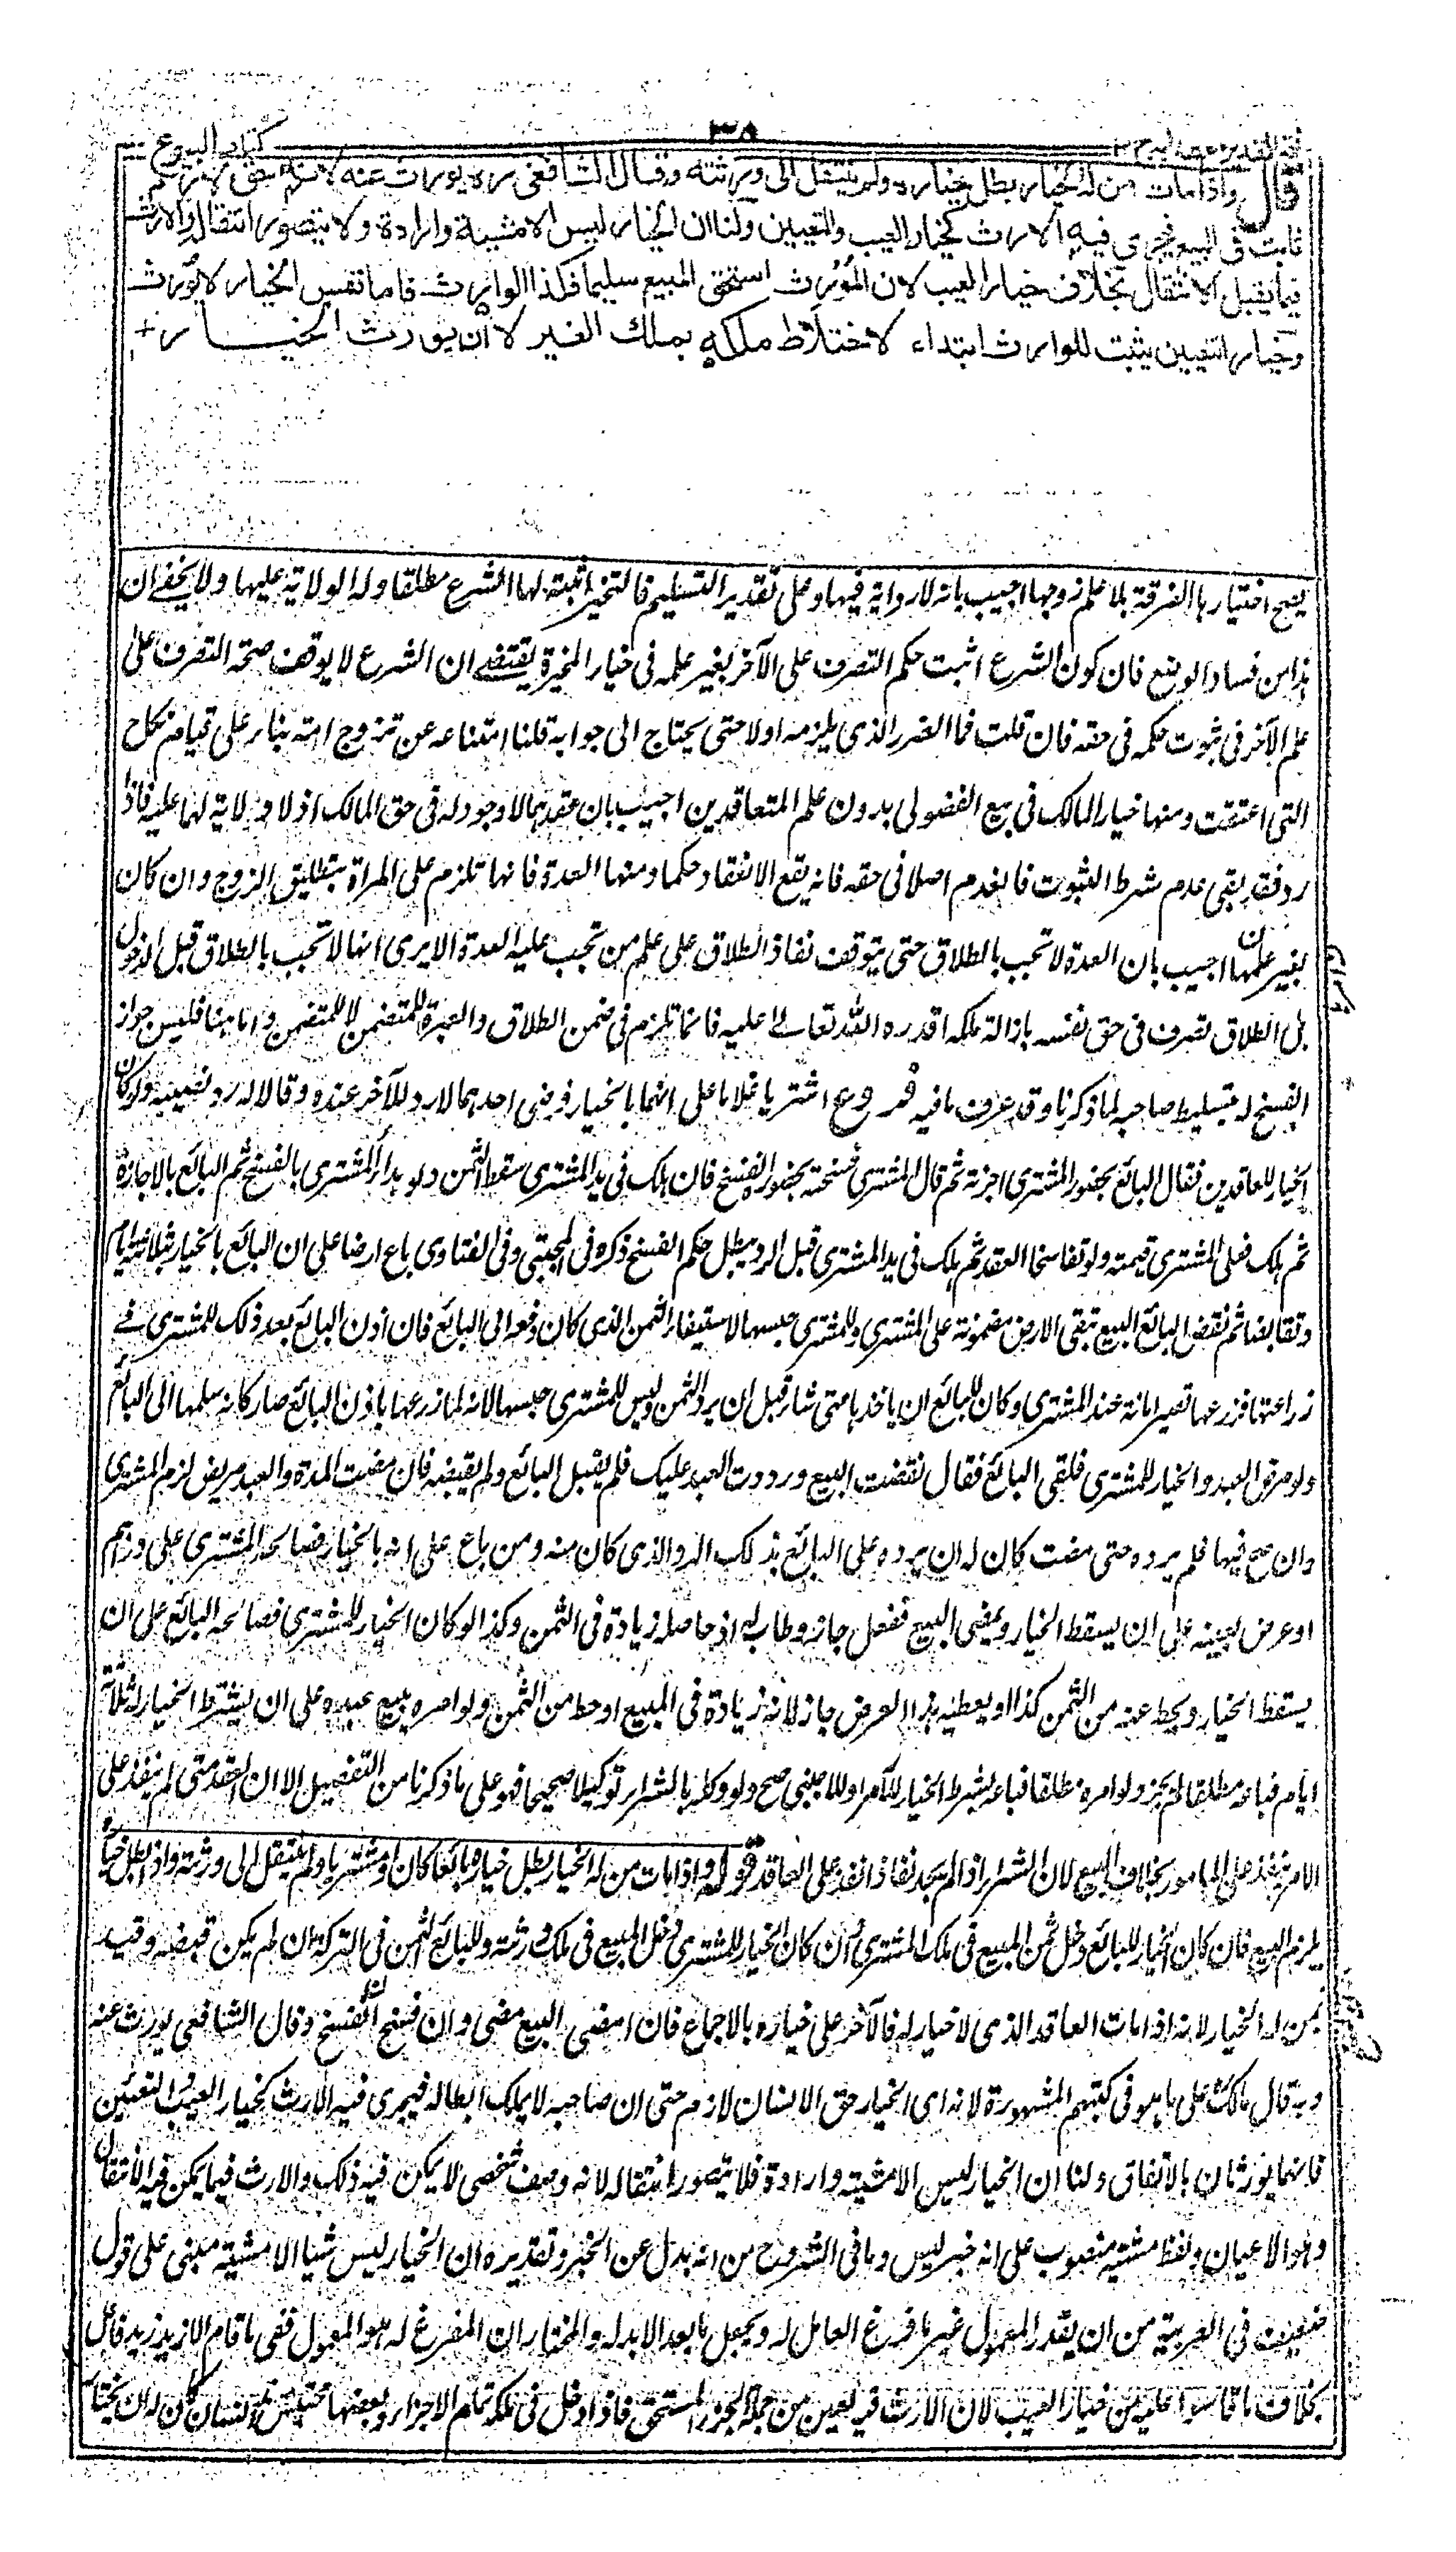 ٣٥
كتاب البيوع
قال واذا مات من له الخيار بطل خياره ولم ينتقل الى ورثته وقال الشافعى ره يورث عنه لانه حق لازم
ثابت فى البيع فيجرى فيه الارث كخيار العيب والتعيين ولنا ان الخيار ليس الا مشيئة وارادة ولا يتصور انتقاله والارث
فيما يقبل الانتقال بخلاف خيار العيب لان المورث استحق المبيع سليما فكذا الوارث فاما نفس الخيار لا يورث
وخيار التعيين يثبت للوارث ابتداء لاختلاط ملكه بملك الغير لا ان يورث الخيار
يصح اختيارها الفرقة بلا علم زوجها اجيب بانه لا رواية فيها وعلى تقدير التسليم فالتخيير اثبته لها الشرع مطلقا وله الولاية عليها ولا يخفى ان
هذا من فساد الوضع فان كون الشرع اثبت حكم التصرف على الآخر بغير علمه فى خيار المخيرة يقتضى ان الشرع لا يوقف صحة التصرف على
علم الآخر فى ثبوت حكمه فى حقه فان قلت فما الضرر الذى يلزمه اولا حتى يحتاج الى جوابه قلنا امتناعه عن تزوج امته بناء على قيام نكاح
التى اعتقت ومنها خيار المالك فى بيع الفضولى بدون علم المتعاقدين اجيب بان عقدهما لا وجود له فى حق المالك اذ لا ولاية لهما عليه فاذا
رد فقد بقى عدم شرط الثبوت فانعدم اصلا فى حقه فانه يقع الانعقاد حكما ومنها العدة فانها تلزم على المراة بتطليق الزوج وان كان
بغير علمها اجيب بان العدة لا تجب بالطلاق حتى يتوقف نفاذ الطلاق على علم من تجب عليه العدة الا يرى انها لا تجب بالطلاق قبل الدخول
بل الطلاق تصرف فى حق نفسه بازالة ملكه اقدره الله تعالى عليه فانما تلزم فى ضمن الطلاق والعبرة للمتضمن لا للمتضمن واما هنا فليس جواز
الفسخ له بتسليط صاحبه لما ذكرنا وقد عرف ما فيه فروع اشتريا غلاما على انهما بالخيار فرضى احدهما لا رد للآخر عنده وقالا له رد نصيبه ولو كان
الخيار للعاقدين فقال البائع بحضور المشترى اجزته ثم قال المشترى فسخته بحضوره انفسخ فان هلك فى يد المشترى سقط الثمن ولو بدأ المشترى بالفسخ ثم البائع بالاجازة
ثم هلك فعلى المشترى قيمته ولو تفاسخا العقد ثم هلك فى يد المشترى قبل الرد يبطل حكم الفسخ ذكره فى المجتبى وفى الفتاوى باع ارضا على ان البائع بالخيار ثلاثة ايام
وتقابضا ثم نقض البائع البيع تبقى الارض مضمونة على المشترى وللمشترى حبسها لاستيفاء الثمن الذى كان دفعه الى البائع فان اذن البائع بعد ذلك للمشترى فى
زراعتها فزرعها تصير امانة عند المشترى وكان للبائع ان ياخذها متى شاء قبل ان يرد الثمن وليس للمشترى حبسها لانه لما زرعها باذن البائع صار كانه سلمها الى البائع
ولو مرض العبد والخيار للمشترى فلقى البائع فقال نقضت البيع ورددت العبد عليك فلم يقبل البائع ولم يقبضه فان مضت المدة والعبد مريض لزم المشترى
وان صح فيها فلم يرده حتى مضت كان له ان يرده على البائع بذلك الرد الذى كان منه ومن باع على انه بالخيار فصالحه المشترى على دراهم
او عرض بعينه على ان يسقط الخيار ويمضى البيع ففعل جاز وطاب له اذ حاصله زيادة فى الثمن وكذا لو كان الخيار للمشترى فصالحه البائع على ان
يسقط الخيار ويحط عنه من الثمن كذا او يعطيه هذا العرض جاز لانه زيادة فى المبيع او حط من الثمن ولو امره ببيع عبده على ان يشترط الخيار له ثلاثة
ايام فباعه مطلقا لم يجز ولو امره مطلقا فباعه بشرط الخيار للآمر او للاجنبى صح ولو وكله بالشراء توكيلا صحيحا فهو على ما ذكرنا من التفصيل الا ان العقد متى لم ينفذ على
الامر ينفذ على المامور بخلاف البيع لان الشراء اذا لم يجد نفاذا نفذ على العاقد قوله واذا مات من له الخيار بطل خياره بائعا كان او مشتريا ولم ينتقل الى ورثته واذا بطل خياره
يلزم البيع فان كان الخيار للبائع دخل ثمن المبيع فى ملك المشترى وان كان الخيار للمشترى دخل المبيع فى ملك ورثته وللبائع الثمن فى التركة ان لم يكن قبضه وقيد
بمن له الخيار لانه اذا مات العاقد الذى لا خيار له فالآخر على خياره بالاجماع فان امضى البيع مضى وان فسخ انفسخ وقال الشافعى يورث عنه
وبه قال مالك على ما هو فى كتبهم المشهورة لانه اى الخيار حق الانسان لازم حتى ان صاحبه لا يملك ابطاله فيجرى فيه الارث كخيار العيب والتعيين
فانهما يورثان بالاتفاق ولنا ان الخيار ليس الا مشيئة وارادة فلا يتصور انتقاله لانه وصف شخصى لا يمكن فيه ذلك والارث فيما يمكن فيه الانتقال
وهو الاعيان ولفظ مشيئة منصوب على انه خبر ليس وما فى الشروح من انه بدل عن الخبر وتقديره ان الخيار ليس شيئا الا مشيئة مبنى على قول
ضعيف فى العربية من ان يقدر المعمول غير ما فرغ العامل له ويجعل ما بعد الا بدله والمختار ان المفرغ له هو المعمول ففى ما قام الا زيد زيد فاعل
بخلاف ما قاسوا عليه من خيار العيب لان الارث فيه لعين من جملة الجزء المستحق فاذا دخل فى ملكه تمام الاجزاء وبعضها محتبس عند انسان كان له ان يختار